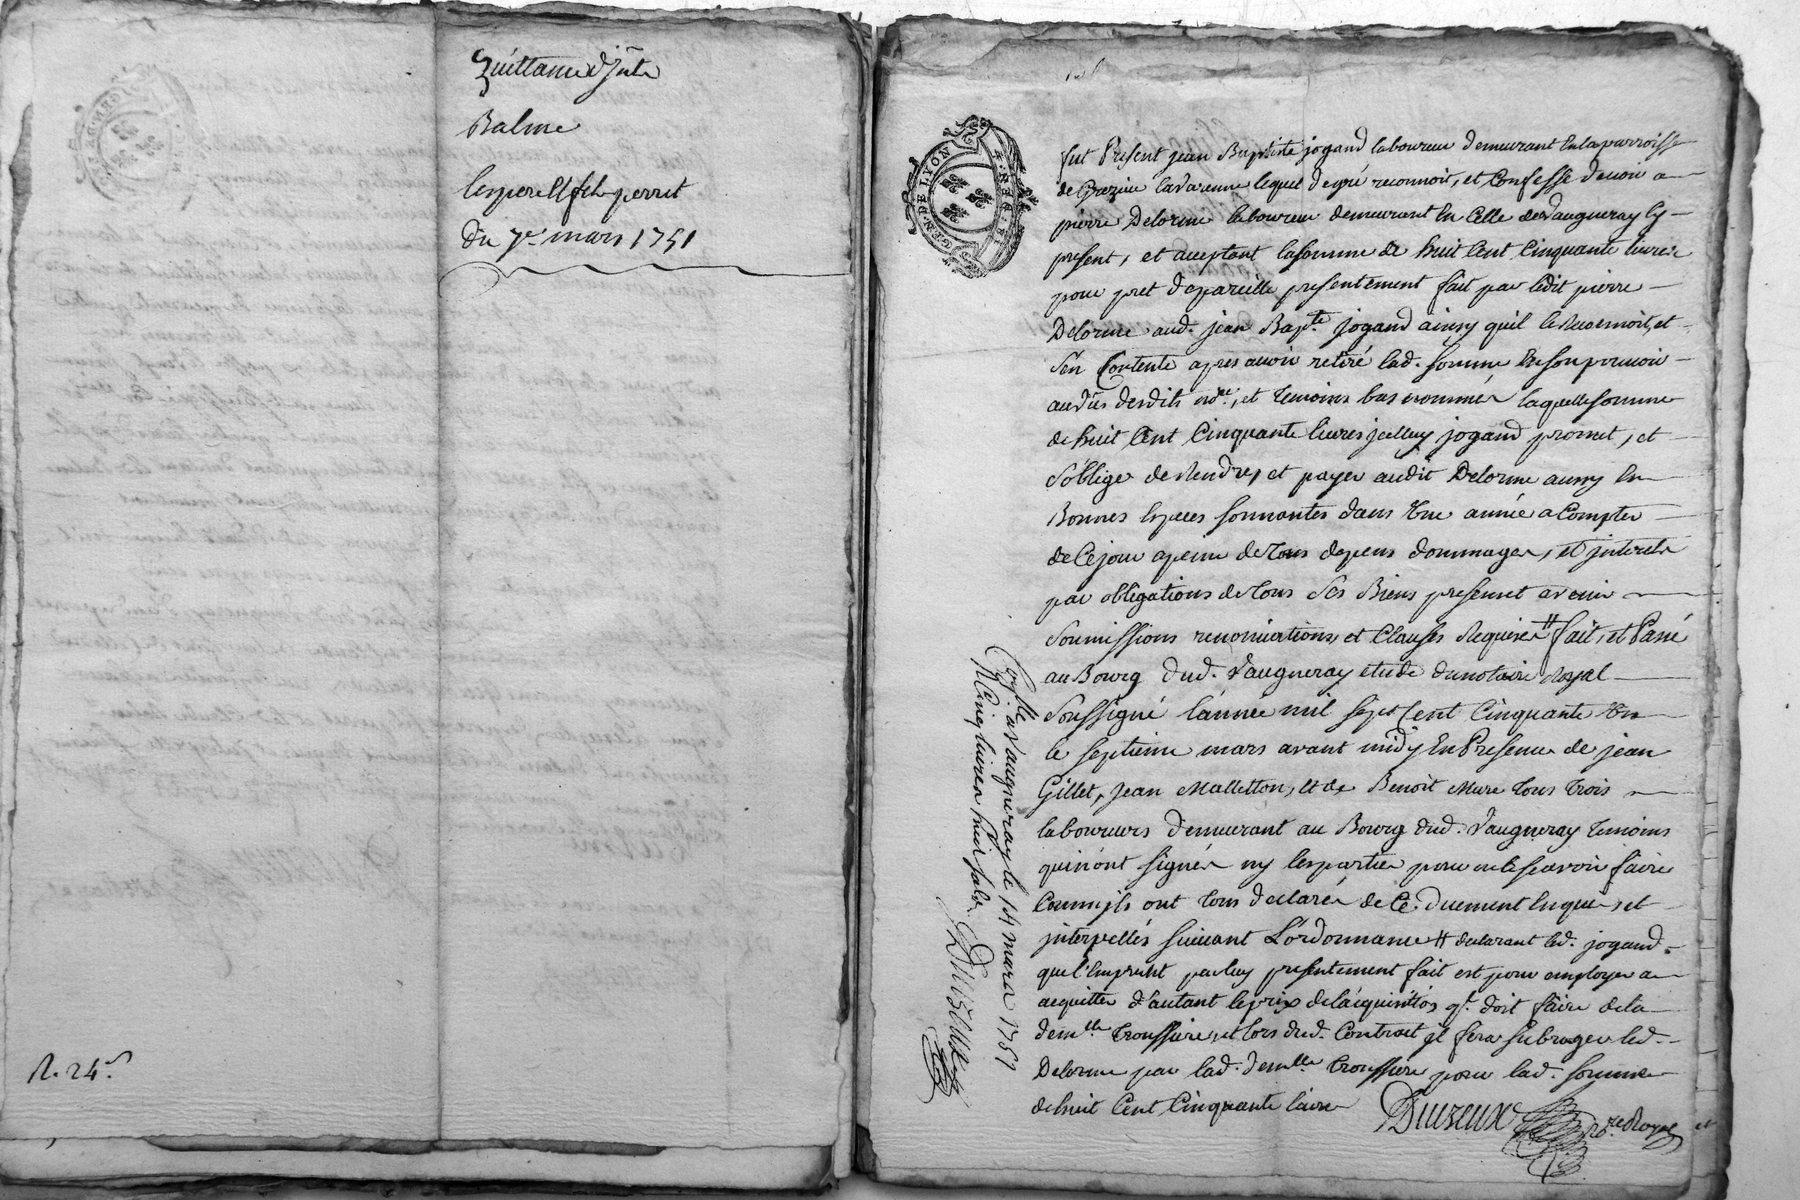 Quittance d'Jnte
Balme
les pere et fils perret
du 7e mars 1751
R. 24s
GEN. DE LYON
fut Present jean Baptiste jogand laboureur demeurant en la parroisse
de Grezieu lavarenne lequel de gré reconnoit, et Confesse devoir a
pierre Delorme laboureur demeurant en Celle de Vaugneray Cy
present, et acceptant la somme de huit Cent Cinquante livres
pour pret de pareille presentement fait par ledit pierre
Delorme aud. jean Bapte. jogand ainsy quil le Reconnoit, et
s'en Contente apres avoir retiré lad. somme en son pouvoir
au vûs desdits nore., et temoins bas nommés laquelle somme
de huit Cent Cinquante livres jcelluy jogand promet, et
s'oblige de Rendre, et payer audit Delorme aussy en
Bonnes especes sonnantes dans Une année a Compter
de Ce jour a peine de tous depens dommages, et jnterets
par obligations de tous ses Biens presens et avenir
soumissions renonciations et Clauses Requises # fait, et Passé
au Bourg dud. Vaugneray etude du notaire Royal
soussigné l'année mil sept Cent Cinquante Un
le septieme mars avant midy En Presence de jean
Gillet, jean Malletton, et de Benoit Mure tous trois
laboureurs demeurant au Bourg dud. Vaugneray temoins
qui n'ont signés ny les parties pour ne le scavoir faire
Comm'jls ont tous declarés de Ce. duement enquis, et
jnterpellés suivant L'ordonnance # declarant led. jogand
que l'emprunt par luy presentement fait est pour employer a
acquitter d'autant le prix de l'acquisition qt. doit faire de la
demlle troussiere, et lors dud. Contrat jl fera subroger led.
Delorme par lad. demlle troussiere pour lad. somme
de huit Cent Cinquante livres
Duizeux nore. Royal
Conlle a Vaugneray le 14 mars 1751
R Cinq livres huit sols Duizeux